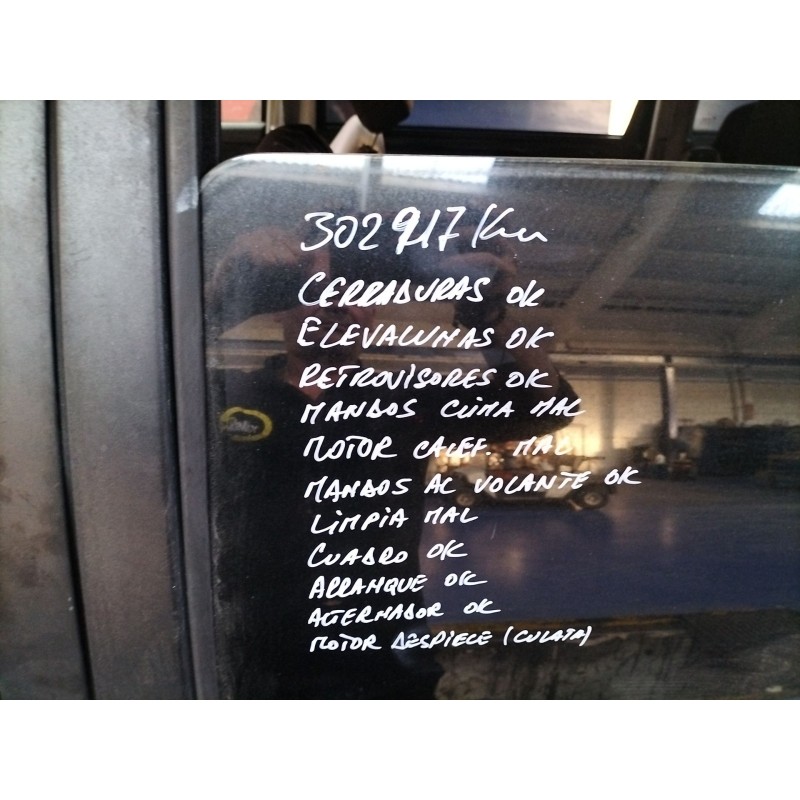 302917 Km
CERRADURAS OK
ELEVALUNAS OK
RETROVISORES OK
MANDOS CLIMA MAL
MOTOR CALEF. MAL
MANDOS AL VOLANTE OK
LIMPIA MAL
CUADRO OK
ARRANQUE OK
ALTERNADOR OK
MOTOR DESPIECE (CULATA)